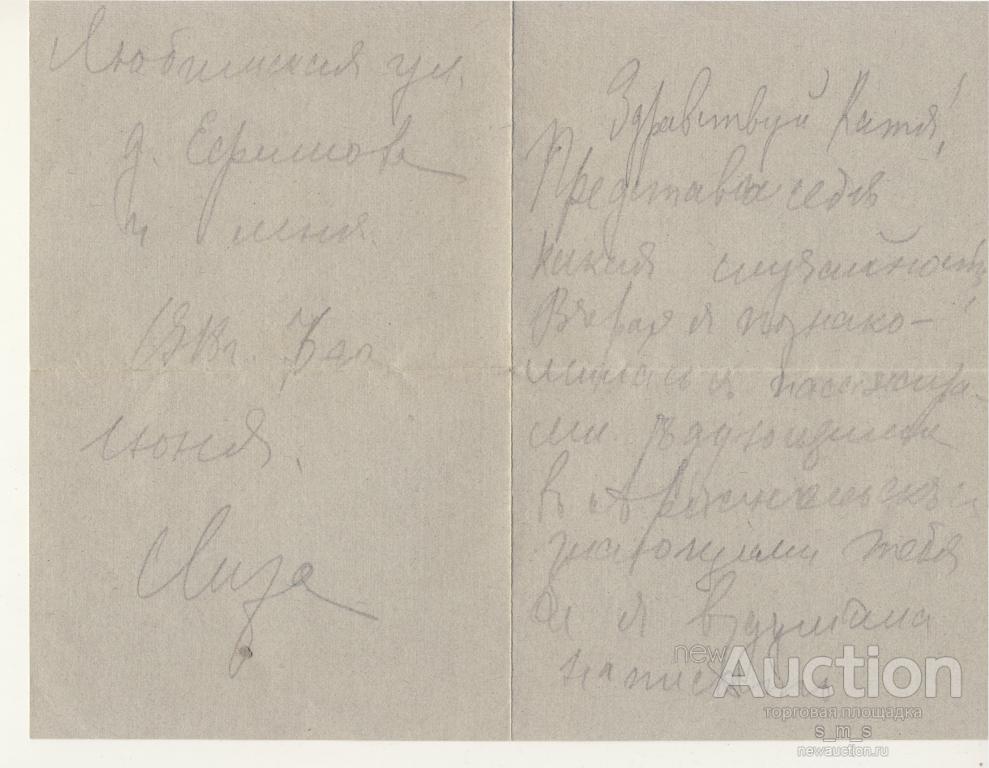 Любимская ул.
д. Ефимова
меня.
июня.
Лиза
Здравствуй Катя!
Представь себе
какая случайность!
Вчера я познако-
милась с пассажира-
ми едующими
в Архангельск и
знающими тебя
и я вздумала
написать
newAuction
торговая площадка
s_m_s
newauction.ru